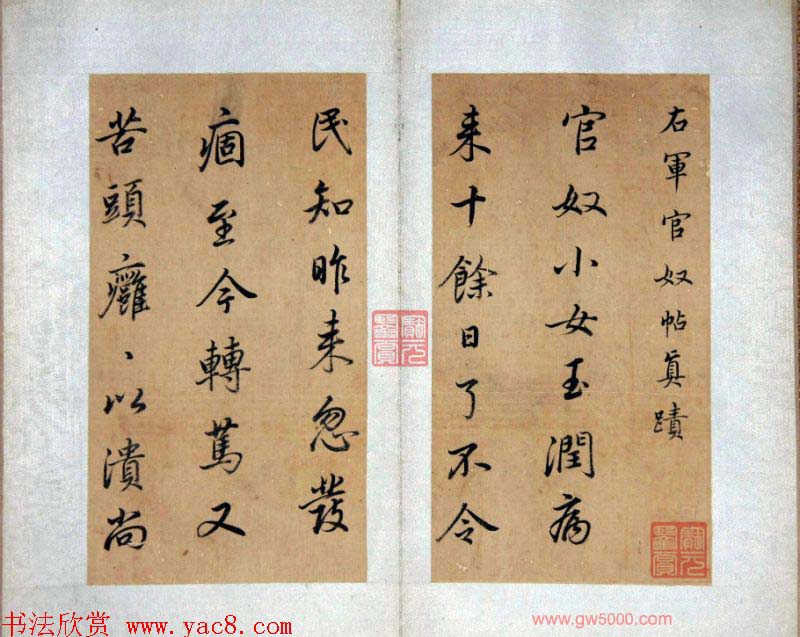 右軍官奴帖真蹟
官奴小女玉潤病
来十餘日了不令
民知昨来忽發
痼至今轉篤又
苦頭癰、以潰尚
書法欣赏 www.yac8.com
www.gw5000.com